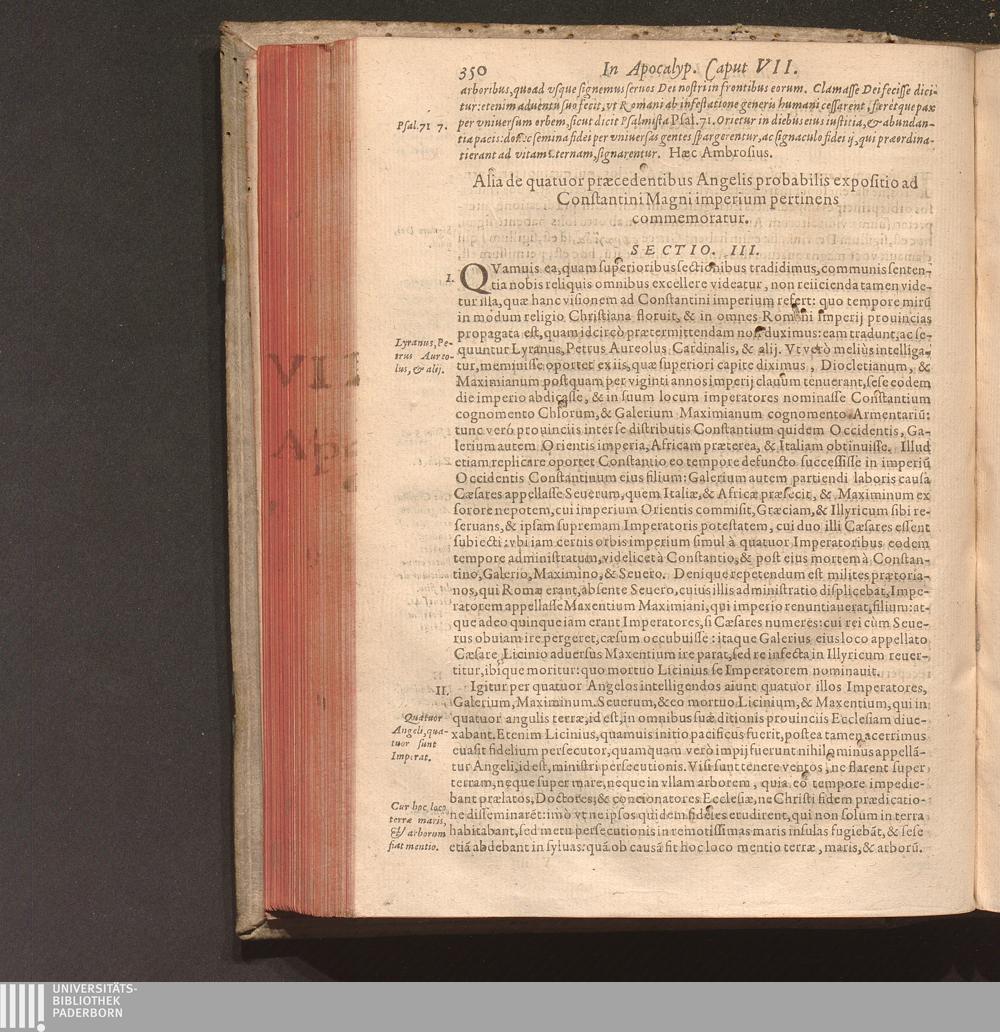 350 In Apocalyp. Caput VII.
arboribus, quoad vsque signemus seruos Dei nostri in frontibus eorum. Clamasse Dei fecisse dici-
tur: etenim aduentu suo fecit, vt Romani ab infestatione generis humani cessarent, fieretque pax
Psal. 71 7.
per vniuersum orbem, sicut dicit Psalmista Psal. 71. Orietur in diebus eius iustitia, & abundan-
tia pacis: donec semina fidei per vniuersas gentes spargerentur, ac signaculo fidei ij, qui præordina-
ti erant ad vitam æternam, signarentur. Hæc Ambrosius.
Alia de quatuor præcedentibus Angelis probabilis expositio ad
Constantini Magni imperium pertinens
commemoratur.
SECTIO. III.
I.
QVamuis ea, quam superioribus sectionibus tradidimus, communis senten-
tia nobis reliquis omnibus excellere videatur, non reiicienda tamen vide-
tur illa, quæ hanc visionem ad Constantini imperium refert: quo tempore mirũ
in modum religio Christiana floruit, & in omnes Romani imperij prouincias
propagata est, quam idcircò prætermittendam non duximus: eam tradunt, ac se-
Lyranus, Pe-
trus Aureo-
lus, & alij.
quuntur Lyranus, Petrus Aureolus Cardinalis, & alij. Vt verò meliùs intelliga-
tur, meminisse oportet ex iis, quæ superiori capite diximus, Diocletianum, &
Maximianum postquam per viginti annos imperij clauum tenuerant, sese eodem
die imperio abdicasse, & in suum locum imperatores nominasse Constantium
cognomento Chlorum, & Galerium Maximianum cognomento Armentariũ:
tunc verò prouinciis inter se distributis Constantium quidem Occidentis, Ga-
lerium autem Orientis imperia, Africam præterea, & Italiam obtinuisse. Illud
etiam replicare oportet Constantio eo tempore defuncto successisse in imperiũ
Occidentis Constantinum eius filium: Galerium autem partiendi laboris causa
Cæsares appellasse Seuerum, quem Italiæ, & Africæ præfecit, & Maximinum ex
sorore nepotem, cui imperium Orientis commisit, Græciam, & Illyricum sibi re-
seruans, & ipsam supremam Imperatoris potestatem, cui duo illi Cæsares essent
subiecti: vbi iam cernis orbis imperium simul à quatuor Imperatoribus eodem
tempore administratum, videlicet à Constantio, & post eius mortem à Constan-
tino, Galerio, Maximino, & Seuero. Denique repetendum est milites prætoria-
nos, qui Romæ erant, absente Seuero, cuius illis administratio displicebat, Impe-
ratorem appellasse Maxentium Maximiani, qui imperio renuntiauerat, filium: at-
que adeo quinque iam erant Imperatores, si Cæsares numeres: cui rei cùm Seue-
rus obuiam ire pergeret, cæsum occubuisse: itaque Galerius eius loco appellato
Cæsare Licinio aduersus Maxentium ire parat, sed re infecta in Illyricum reuer-
titur, ibique moritur: quo mortuo Licinius se Imperatorem nominauit.
II.
Igitur per quatuor Angelos intelligendos aiunt quatuor illos Imperatores,
Galerium, Maximinum. Seuerum, & eo mortuo Licinium, & Maxentium, qui in
Quatuor
Angeli, qua-
tuor sunt
Imperat.
quatuor angulis terræ, id est, in omnibus suæ ditionis prouinciis Ecclesiam diue-
xabant. Etenim Licinius, quamuis initio pacificus fuerit, postea tamen acerrimus
euasit fidelium persecutor, quamquam verò impij fuerunt nihilominus appellã-
tur Angeli, id est, ministri persecutionis. Visi sunt tenere ventos, ne flarent super
terram, neque super mare, neque in vllam arborem, quia eo tempore impedie-
bant prælatos, Doctores, & concionatores Ecclesiæ, ne Christi fidem prædicatio-
Cur hoc loco
terræ maris,
& arborum
fiat mentio.
ne disseminarẽt: imò vt ne ipsos quidem fideles erudirent, qui non solum in terra
habitabant, sed metu persecutionis in remotissimas maris insulas fugiebãt, & sese
etiã abdebant in syluas: quã ob causã fit hoc loco mentio terræ, maris, & arborũ.
UNIVERSITÄTS-
BIBLIOTHEK
PADERBORN